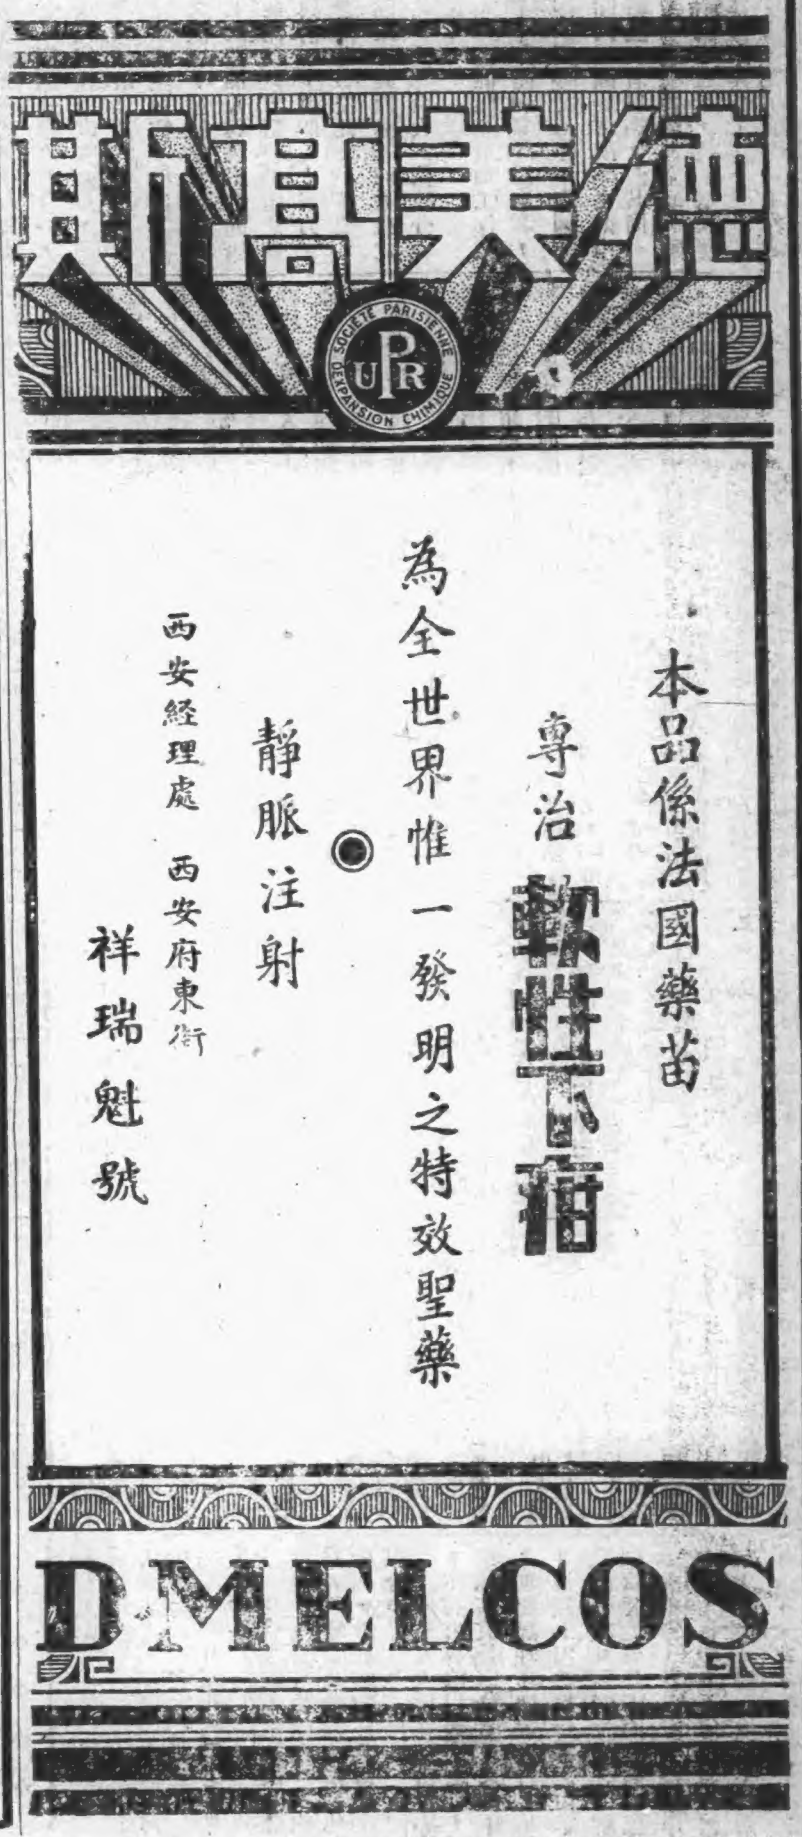 德美高斯
SOCIETE PARISIENNE D'EXPANSION CHIMIQUE
UPR
本品係法國藥苗
專治軟性下疳
為全世界惟一發明之特效聖藥
靜脈注射
西安経理處 西安府東街
祥瑞魁號
D-MELCOS